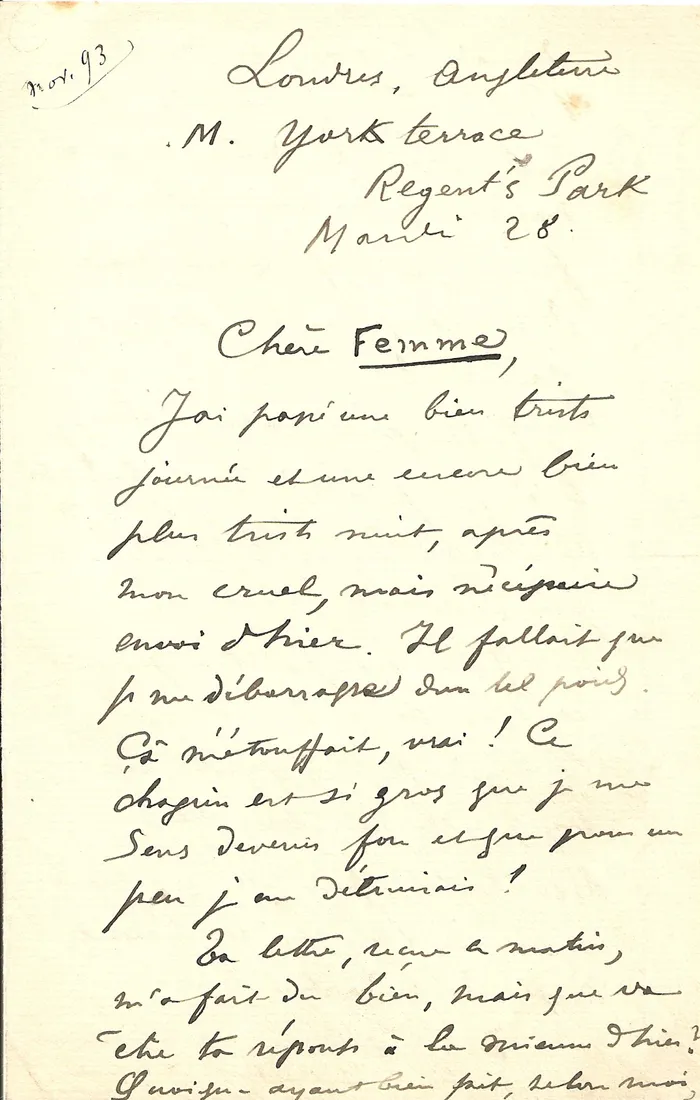 nov. 93
Londres, Angleterre
M. York terrace
Regent's Park
Mardi 28.
Chère Femme,
J'ai passé une bien triste
journée et une encore bien
plus triste nuit, après
mon cruel, mais nécéssaire
envoi d'hier. Il fallait que
je me débarrasse d'un tel poids.
Çà m'étouffait, vrai ! Ce
chagrin est si gros que je me
sens devenir fou et que pour un
peu je me détruirais !
Ta lettre, reçue ce matin,
m'a fait du bien, mais que va
être ta réponse à la mienne d'hier ?
Quoique ayant bien fait, selon moi,